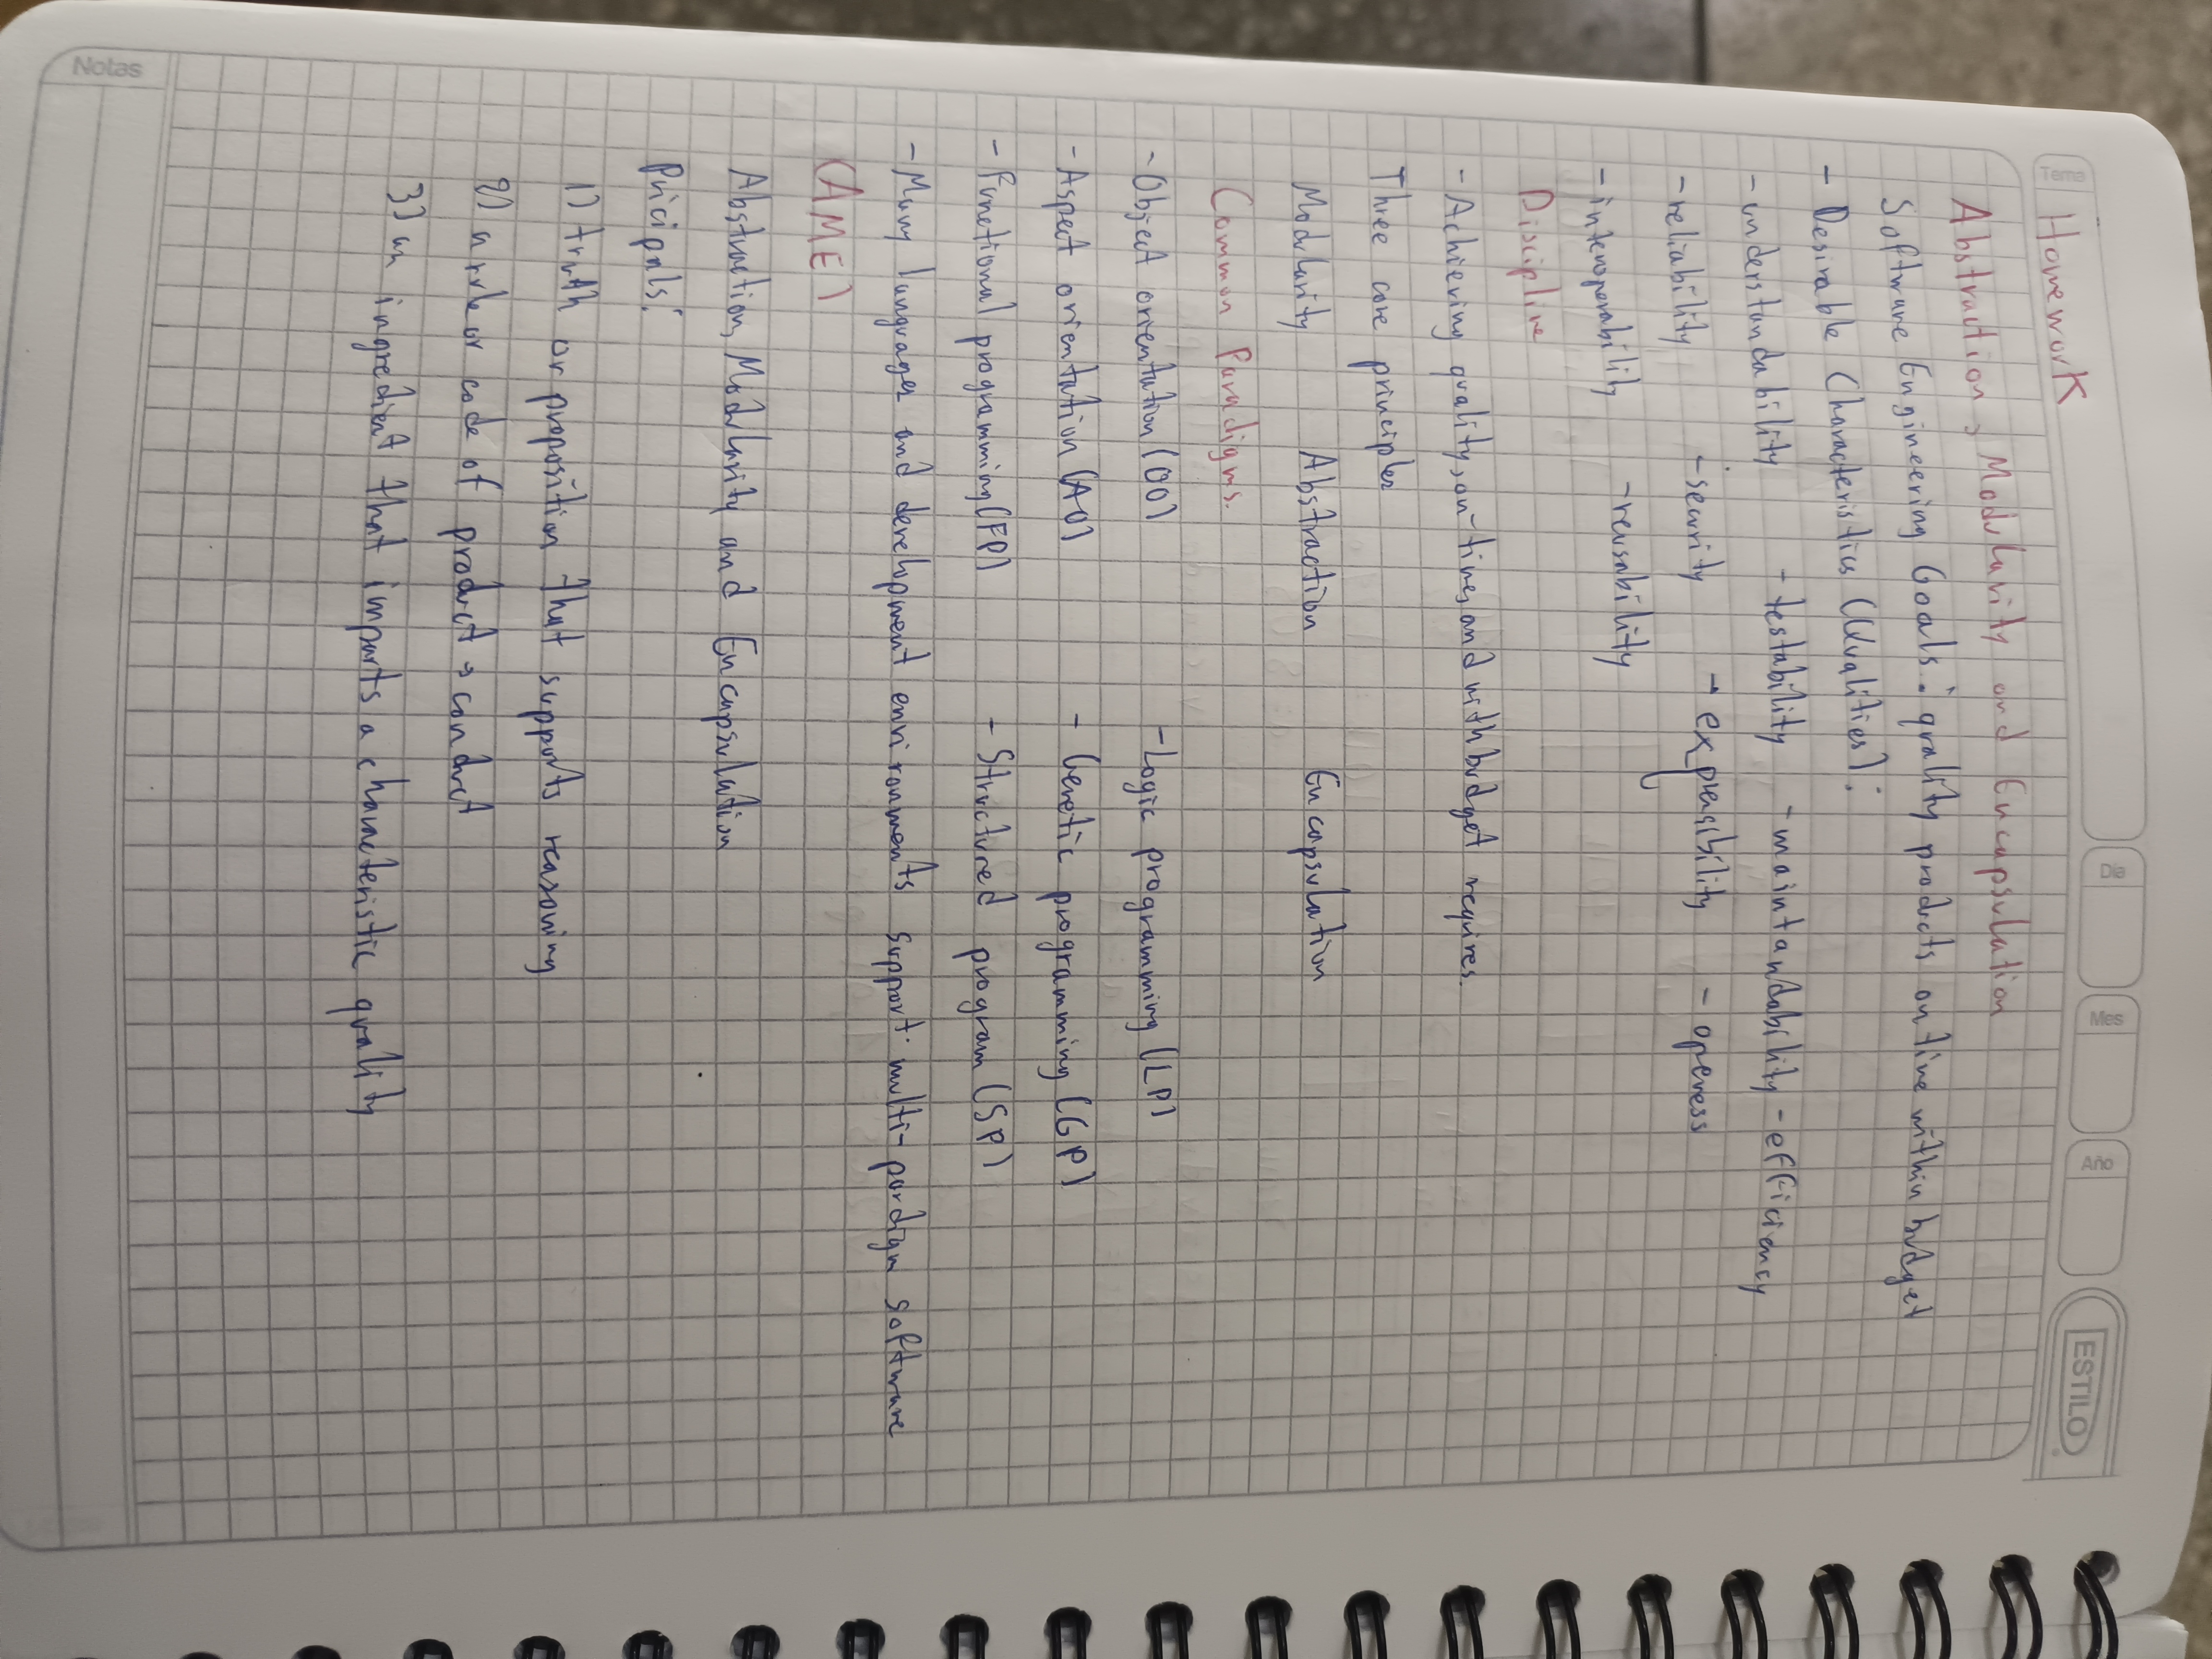 Tema Homework Día Mes Año ESTILO
Abstraction, Modularity and Encapsulation
Software Engineering Goals: quality products on time within budget
- Desirable Characteristics (Qualities):
- understandability - testability - maintandability - efficiency
- reliability - security - expensibility - openess
- interoperability - reusability
Discipline
- Achieving quality, on-time, and with budget requires.
Three core principles
Modularity Abstraction Encapsulation
Common Paradigms.
- Object orientation (OO) - Logic programming (LP)
- Aspect orientation (AO) - Genetic programming (GP)
- Functional programming (FP) - Structured program (SP)
- Many languages and development environments support multi-pardigm software
(AME)
Abstraction, Modularity and Encapsulation
Pricipals:
1) truth or proposition that supports reasoning
2) a rule or code of product, conduct
3) an ingredient that imparts a characteristic quality
Notas